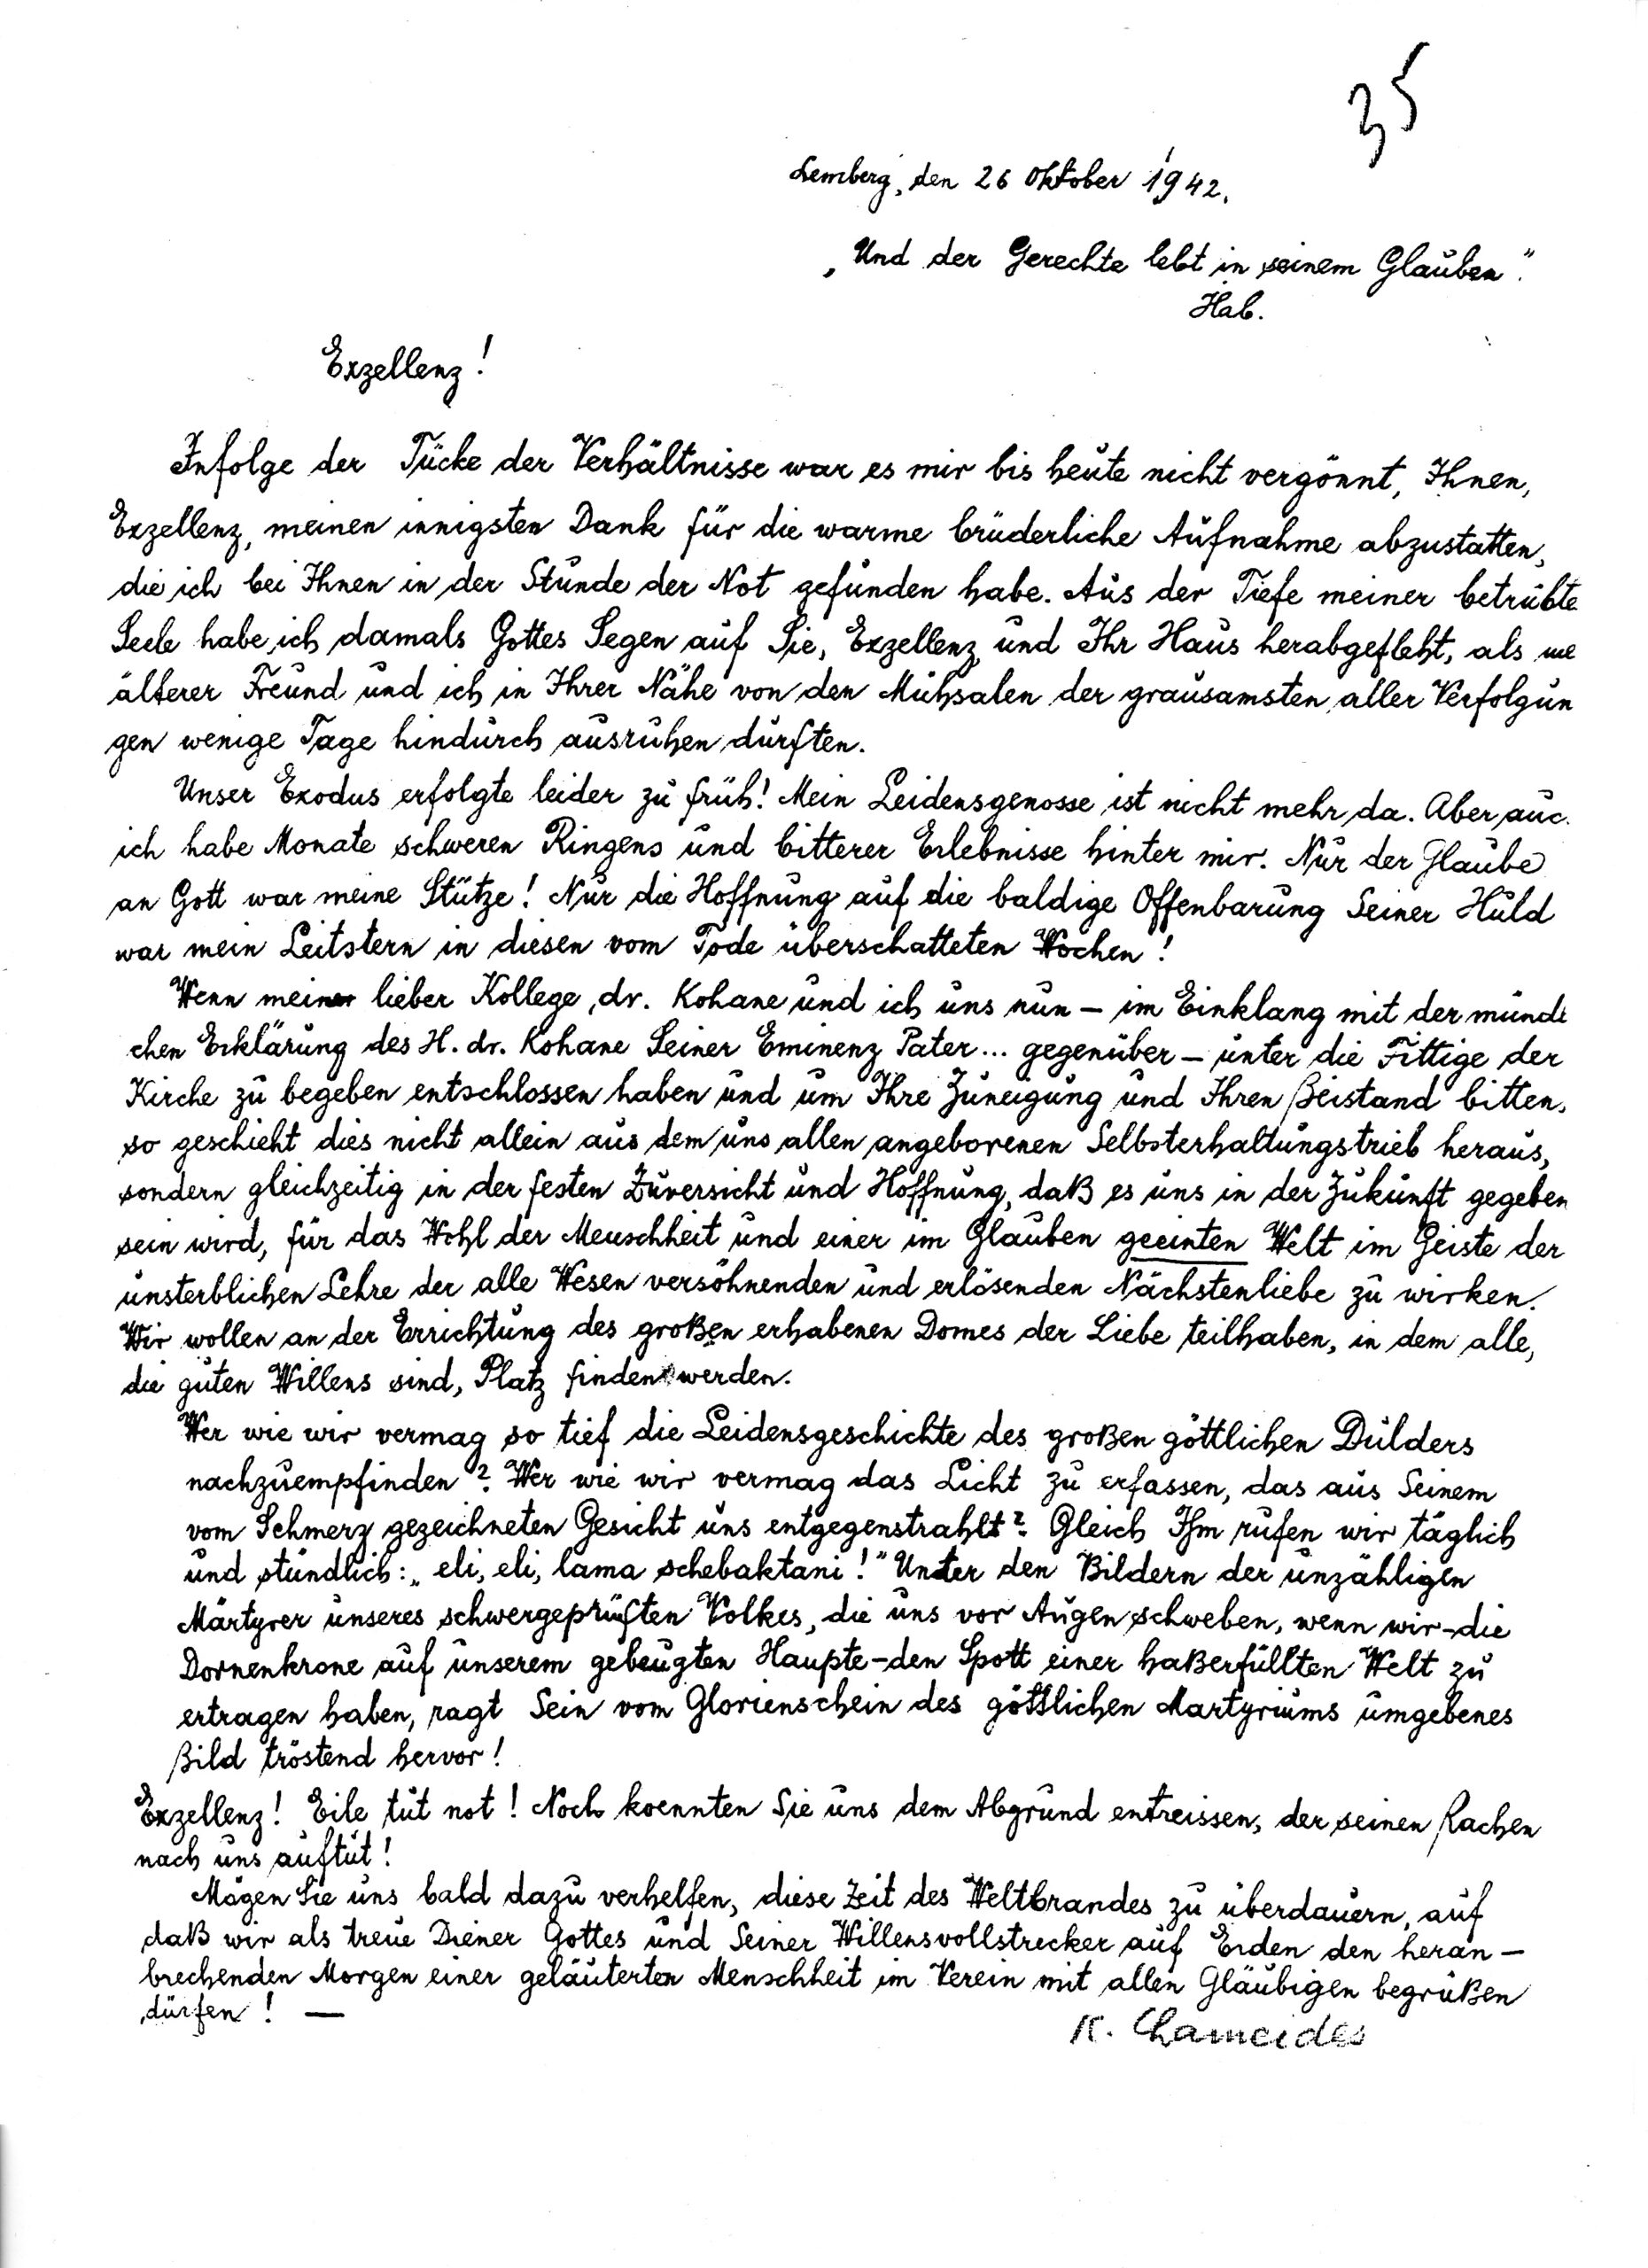 35
Lemberg, den 26 Oktober 1942.
„Und der Gerechte lebt in seinem Glauben".
Hab.
Exzellenz!
Infolge der Tücke der Verhältnisse war es mir bis heute nicht vergönnt, Ihnen,
Exzellenz, meinen innigsten Dank für die warme brüderliche Aufnahme abzustatten,
die ich bei Ihnen in der Stunde der Not gefunden habe. Aus der Tiefe meiner betrübte
Seele habe ich damals Gottes Segen auf Sie, Exzellenz und Ihr Haus herabgefleht, als me
älterer Freund und ich in Ihrer Nähe von den Mühsalen der grausamsten aller Verfolgun
gen wenige Tage hindurch ausruhen durften.
Unser Exodus erfolgte leider zu früh! Mein Leidensgenosse ist nicht mehr da. Aber auc
ich habe Monate schweren Ringens und bitterer Erlebnisse hinter mir. Nur der Glaube
an Gott war meine Stütze! Nur die Hoffnung auf die baldige Offenbarung Seiner Huld
war mein Leitstern in diesen vom Tode überschatteten Wochen!
Wenn mein lieber Kollege, dr. Kohane und ich uns nun – im Einklang mit der mündl
chen Erklärung des H. dr. Kohane Seiner Eminenz Pater... gegenüber – unter die Fittige der
Kirche zu begeben entschlossen haben und um Ihre Zuneigung und Ihren Beistand bitten,
so geschieht dies nicht allein aus dem uns allen angeborenen Selbsterhaltungstrieb heraus,
sondern gleichzeitig in der festen Zuversicht und Hoffnung, daß es uns in der Zukunft gegeben
sein wird, für das Wohl der Menschheit und einer im Glauben geeinten Welt im Geiste der
unsterblichen Lehre der alle Wesen versöhnenden und erlösenden Nächstenliebe zu wirken.
Wir wollen an der Errichtung des großen erhabenen Domes der Liebe teilhaben, in dem alle,
die guten Willens sind, Platz finden werden.
Wer wie wir vermag so tief die Leidensgeschichte des großen göttlichen Dulders
nachzuempfinden? Wer wie wir vermag das Licht zu erfassen, das aus Seinem
vom Schmerz gezeichneten Gesicht uns entgegenstrahlt? Gleich Ihm rufen wir täglich
und stündlich: „eli, eli, lama schebaktani!" Unter den Bildern der unzähligen
Märtyrer unseres schwergeprüften Volkes, die uns vor Augen schweben, wenn wir – die
Dornenkrone auf unserem gebeugten Haupte – den Spott einer haßerfüllten Welt zu
ertragen haben, ragt Sein vom Glorienschein des göttlichen Martyriums umgebenes
Bild tröstend hervor!
Exzellenz! Eile tut not! Noch koennten Sie uns dem Abgrund entreissen, der seinen Rachen
nach uns auftut!
Mögen Sie uns bald dazu verhelfen, diese Zeit des Weltbrandes zu überdauern, auf
daß wir als treue Diener Gottes und Seiner Willensvollstrecker auf Erden den heran –
brechenden Morgen einer geläuterten Menschheit im Verein mit allen Gläubigen begrüßen
dürfen! —
K. Chameides